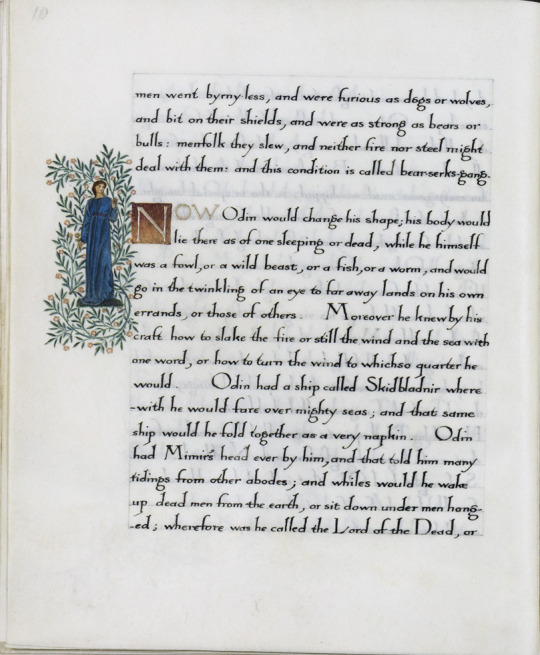 10
men went byrny-less, and were furious as dogs or wolves,
and bit on their shields, and were as strong as bears or
bulls: menfolk they slew, and neither fire nor steel might
deal with them: and this condition is called bear-serks-gang.
NOW Odin would change his shape; his body would
lie there as of one sleeping or dead, while he himself
was a fowl, or a wild beast, or a fish, or a worm, and would
go in the twinkling of an eye to far away lands on his own
errands, or those of others. Moreover he knew by his
craft how to slake the fire or still the wind and the sea with
one word, or how to turn the wind to whichso quarter he
would. Odin had a ship called Skidbladnir where
-with he would fare over mighty seas; and that same
ship would he fold together as a very napkin. Odin
had Mimir's head ever by him, and that told him many
tidings from other abodes; and whiles would he wake
up dead men from the earth, or sit down under men hang-
-ed; wherefore was he called the Lord of the Dead, or